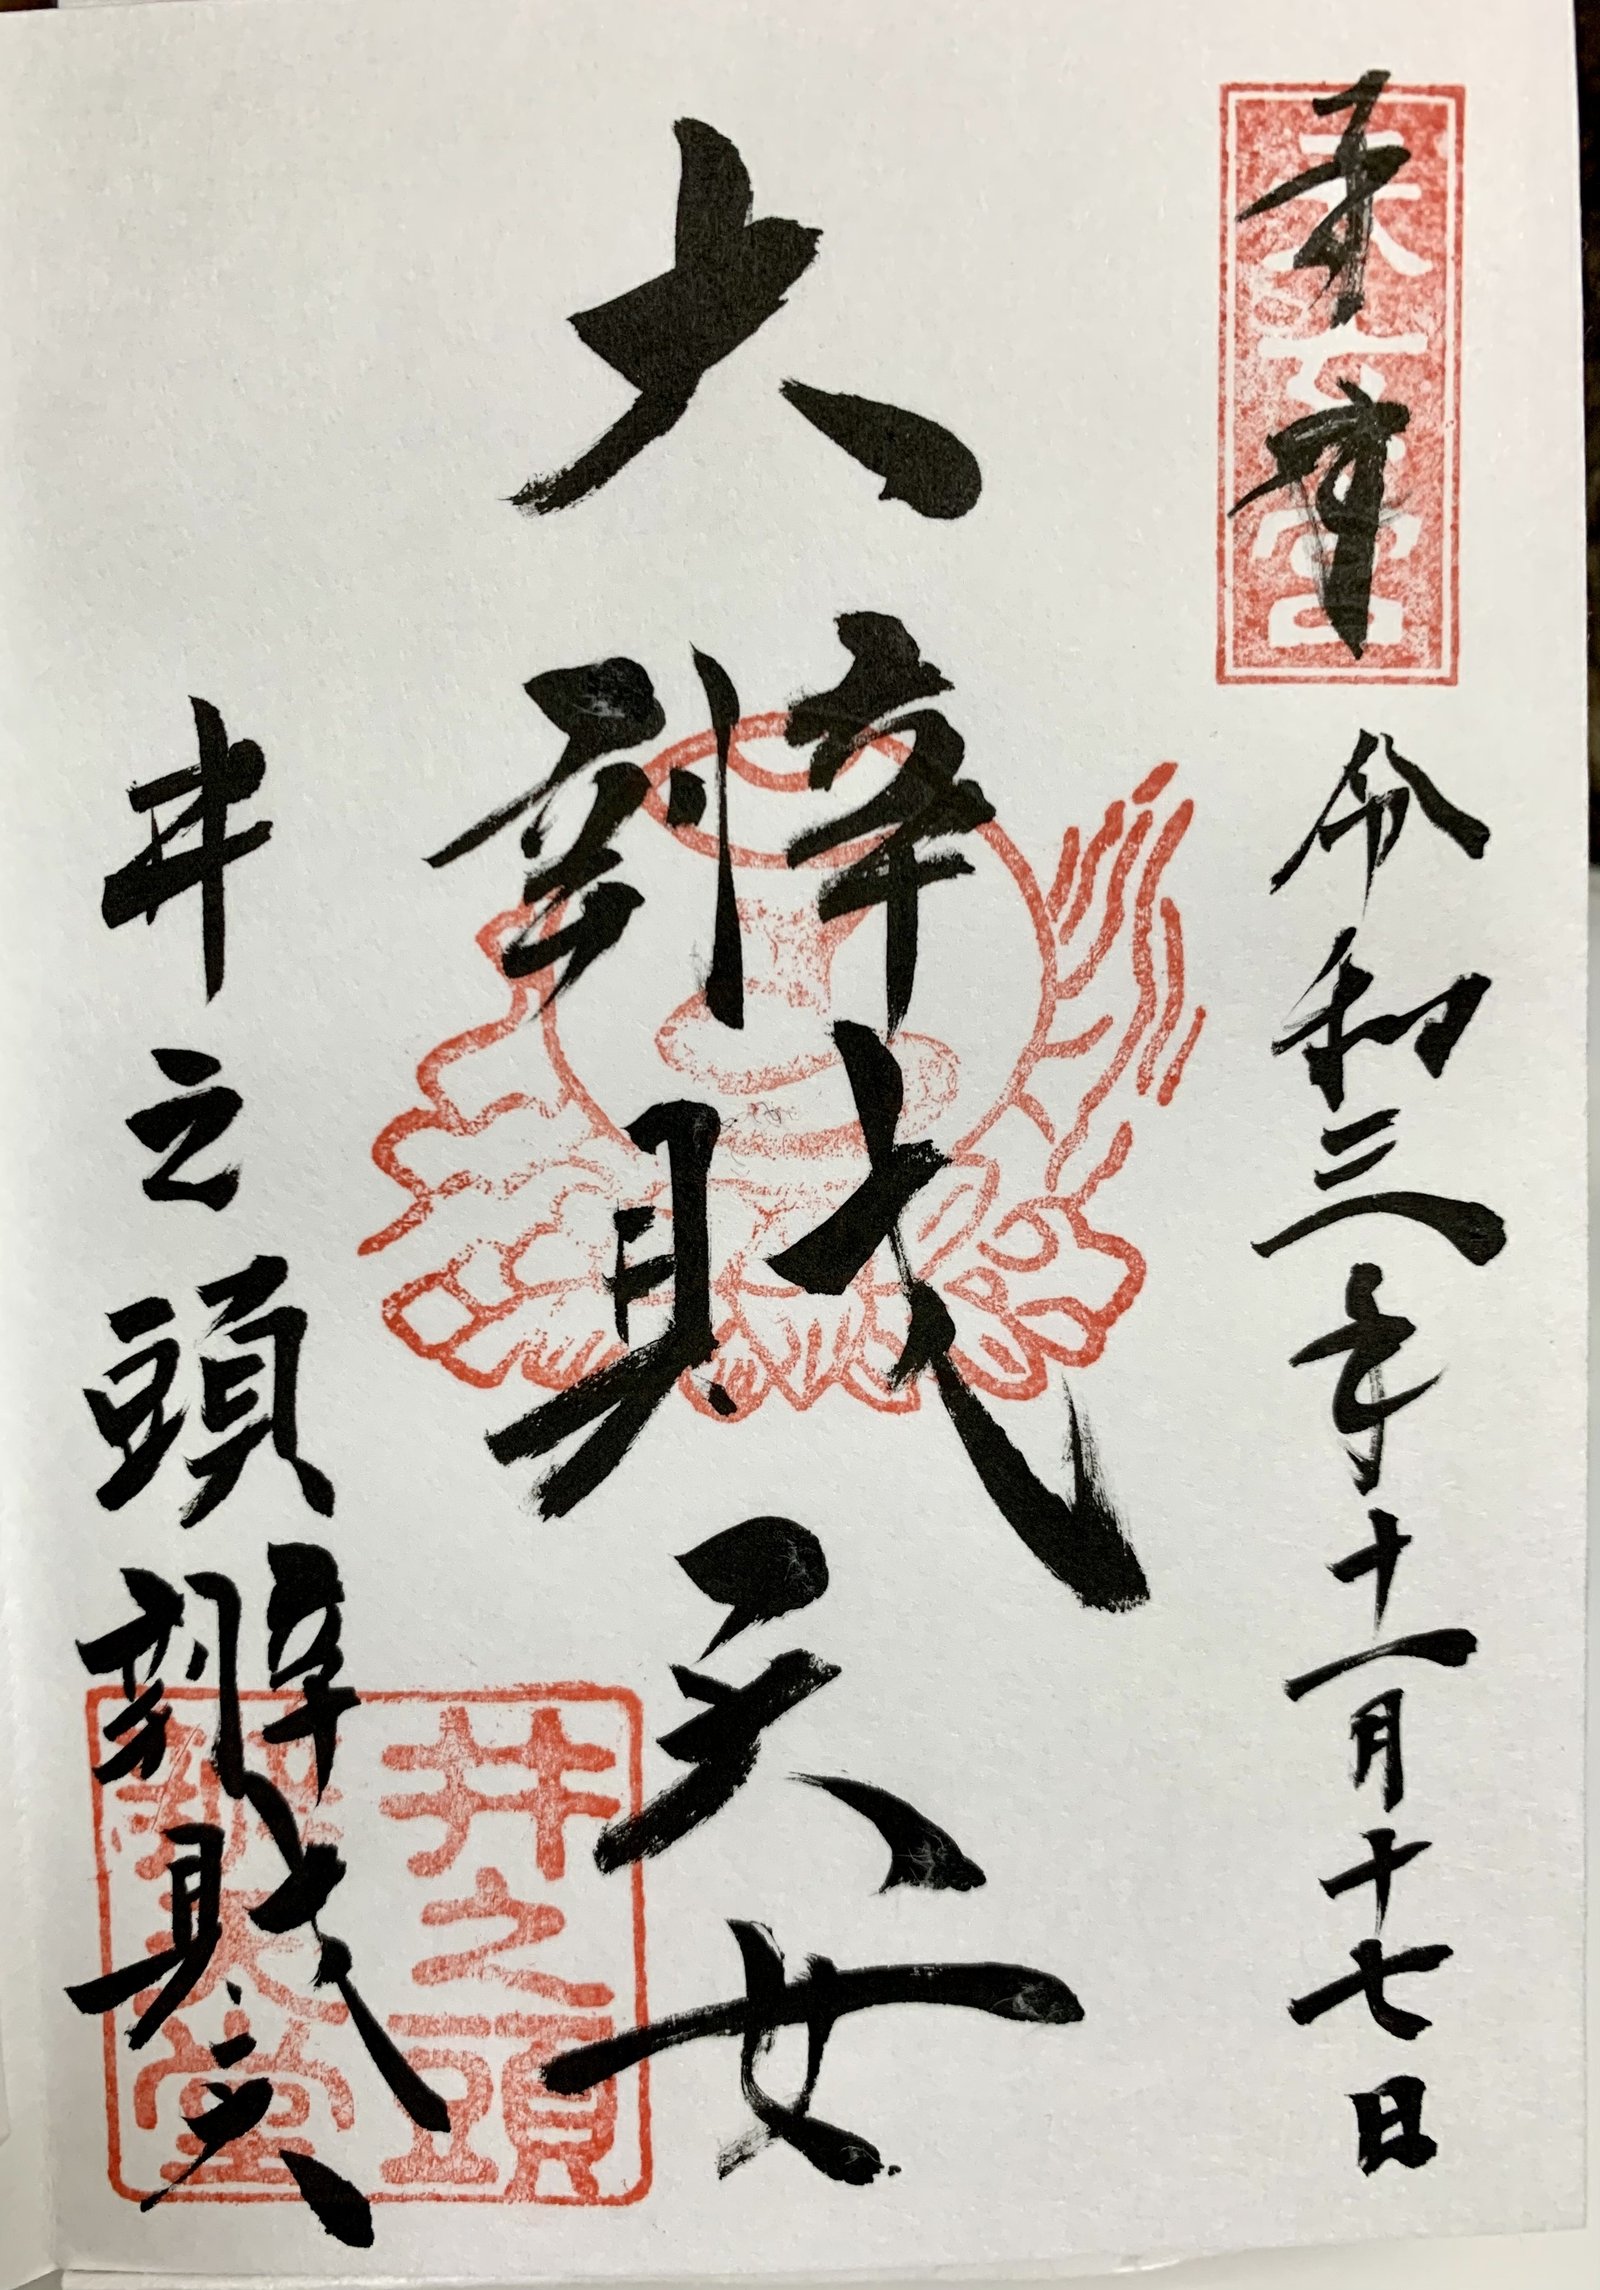 奉拝
令和三年十一月十七日
大辨財天女
井之頭辨財天
井之頭
辨天堂